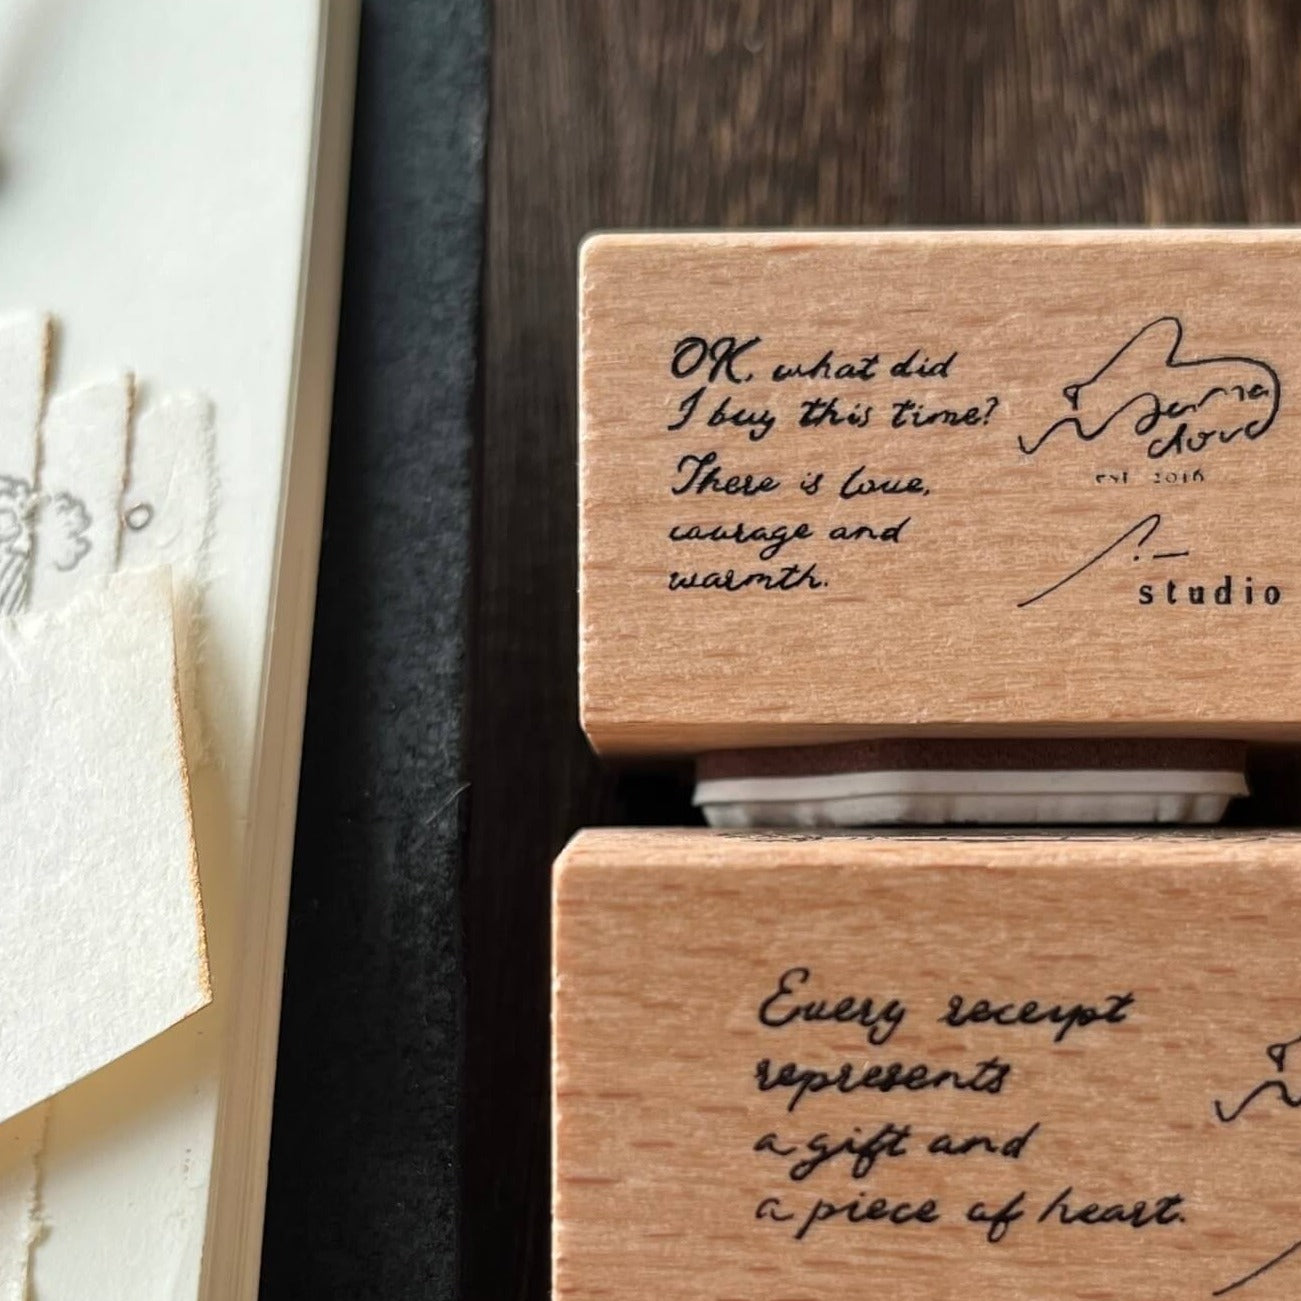 OK, what did
I buy this time?
There is love,
courage and
warmth.
est 2016
studio
Every receipt
represents
a gift and
a piece of heart.